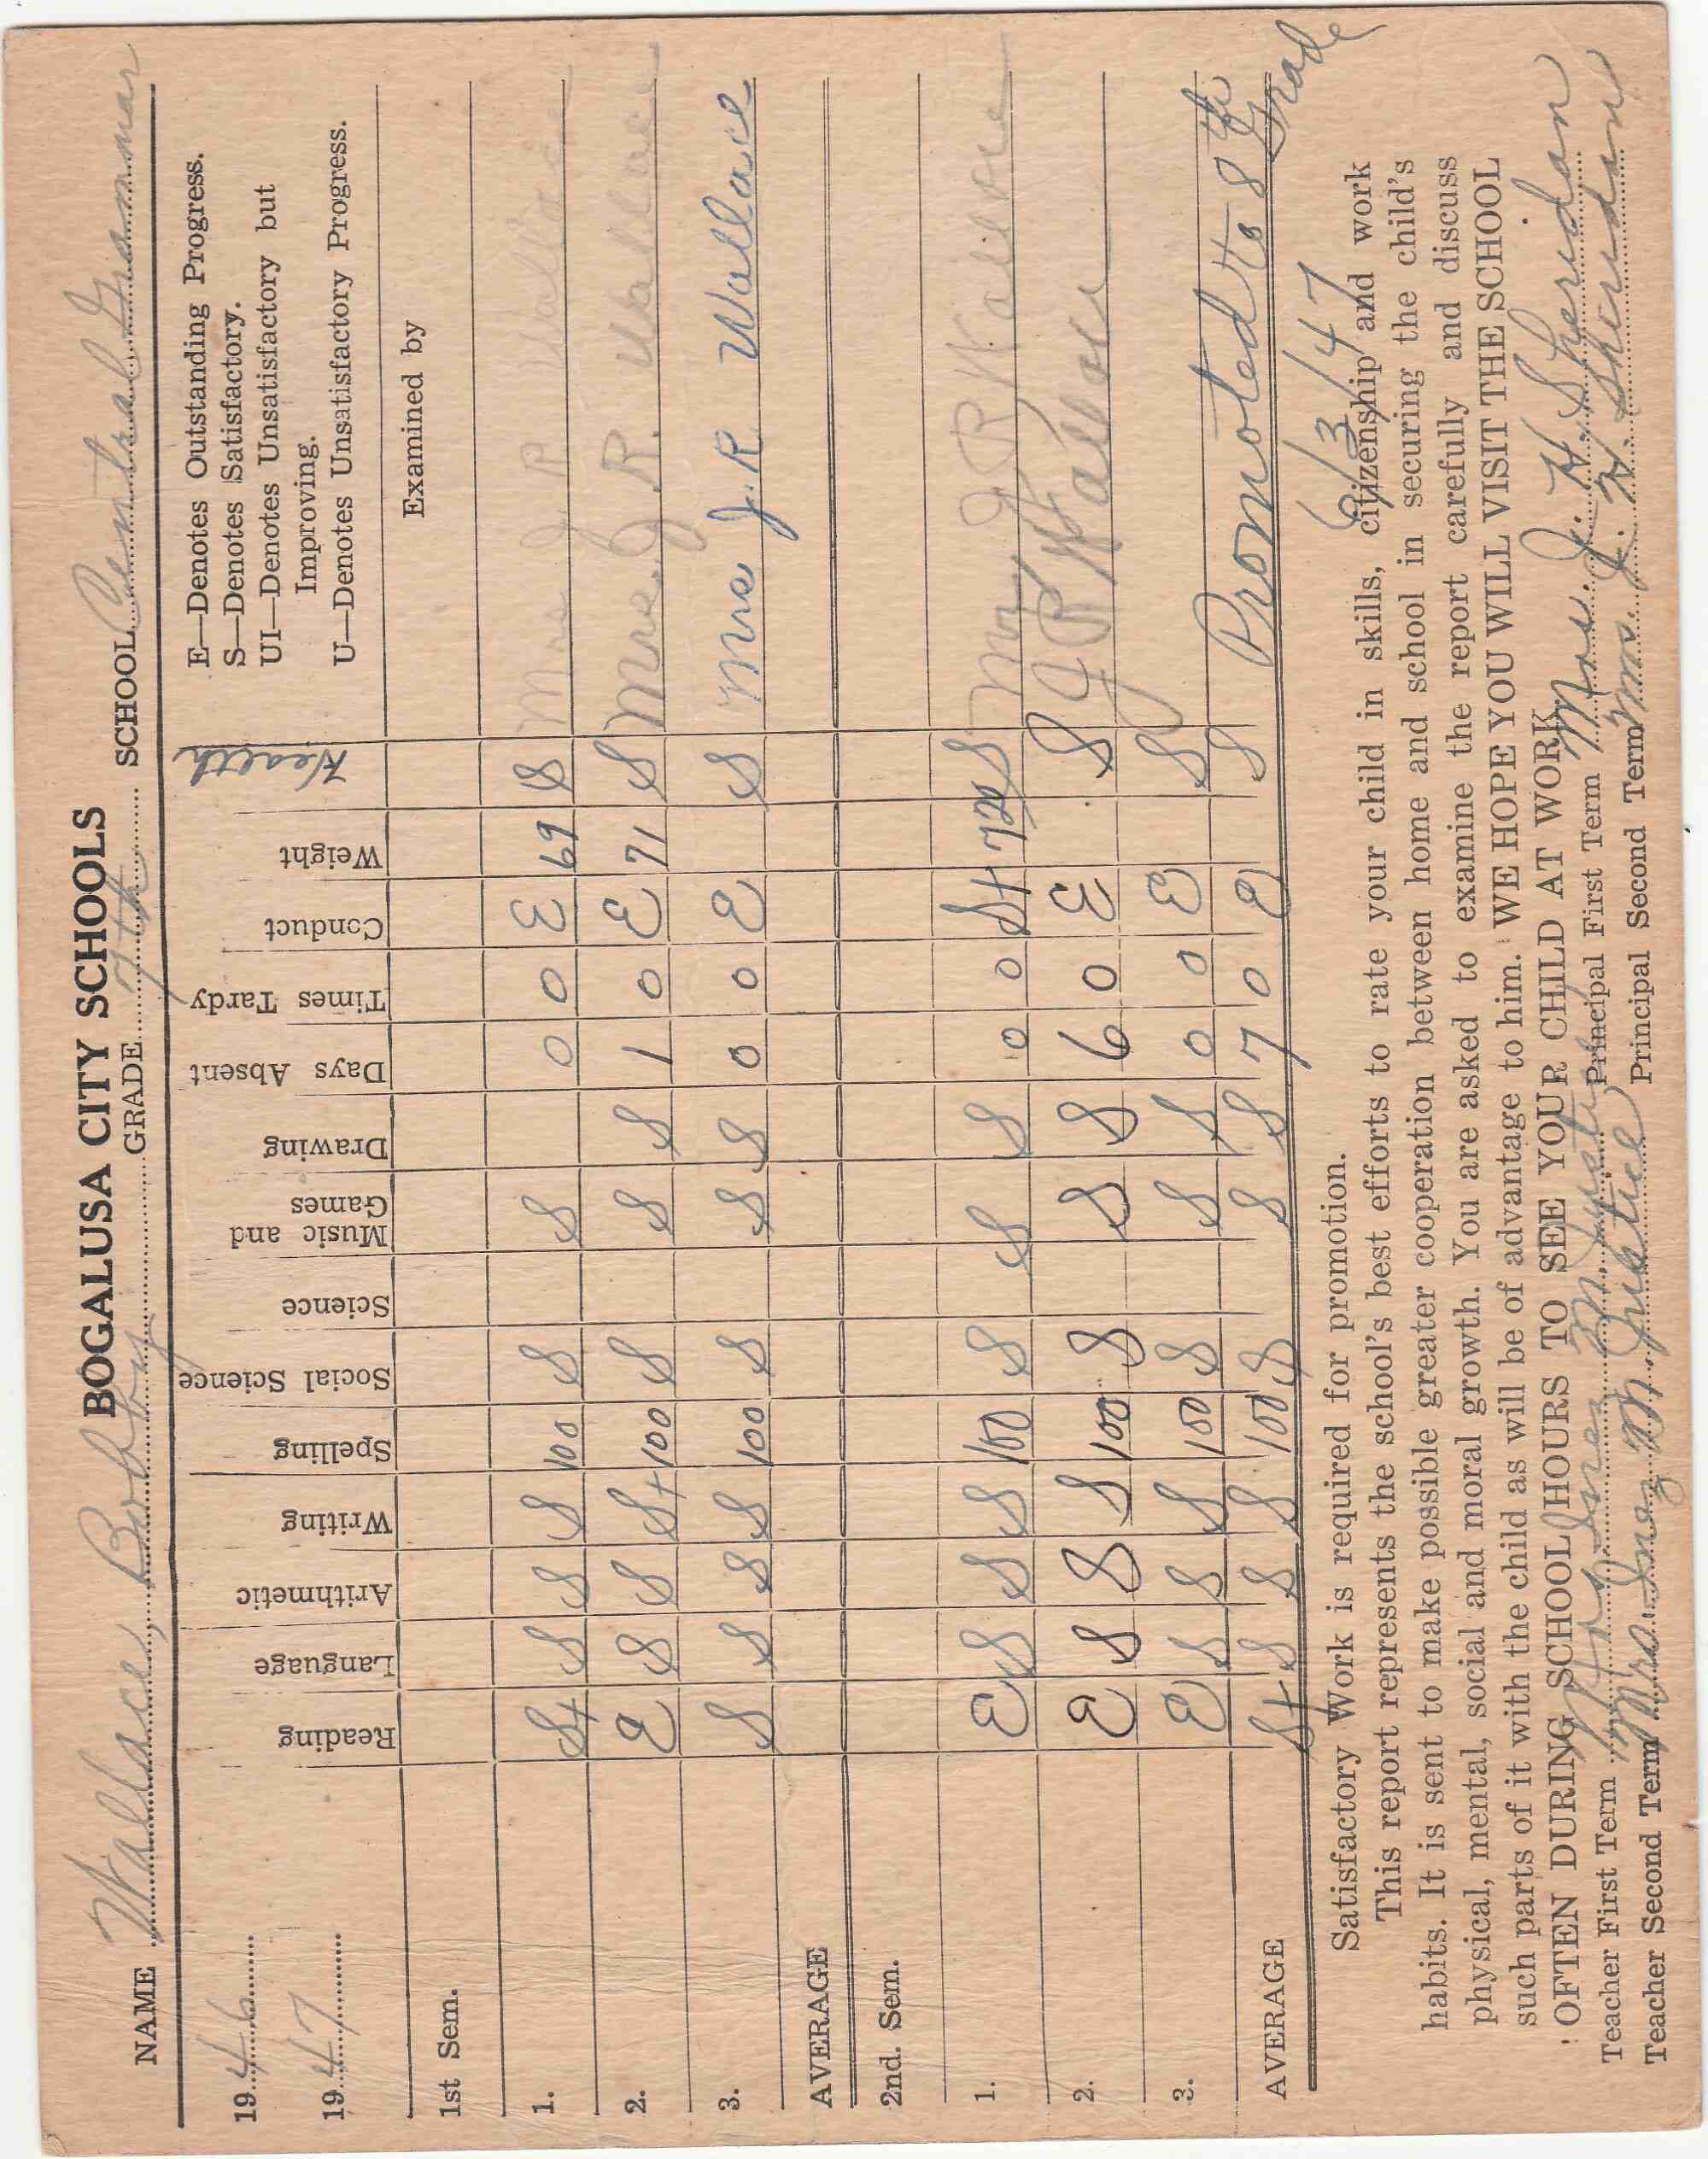 BOGALUSA CITY SCHOOLS
NAME Wallace, Bobby GRADE 7th SCHOOL Central Grammar
1946
1947
Reading Language Arithmetic Writing Spelling Social Science Science Music and Games Drawing Days Absent Times Tardy Conduct Weight Health
E—Denotes Outstanding Progress.
S—Denotes Satisfactory.
UI—Denotes Unsatisfactory but
Improving.
U—Denotes Unsatisfactory Progress.
Examined by
1st Sem.
1. S+ S S S 100 S S 0 0 E 69 S Mrs J. R. Wallace
2. E S S S+ 100 S S S 1 0 E 71 S Mrs. J. R. Wallace
3. S S S S 100 S S S 0 0 E S Mrs J. R Wallace
AVERAGE
2nd. Sem.
1. E S S S 100 S S S 0 0 S+ S J R Wallace
2. E S S S 100 S S S 6 0 E S J R Wallace
3. E S S S 100 S S S 0 0 E S
AVERAGE S+ S S S 100 S S S 7 0 E S Promoted to 8th Grade
6/3/47
Satisfactory Work is required for promotion.
This report represents the school's best efforts to rate your child in skills, citizenship and work
habits. It is sent to make possible greater cooperation between home and school in securing the child's
physical, mental, social and moral growth. You are asked to examine the report carefully and discuss
such parts of it with the child as will be of advantage to him. WE HOPE YOU WILL VISIT THE SCHOOL
OFTEN DURING SCHOOL HOURS TO SEE YOUR CHILD AT WORK.
Teacher First Term Mrs Inez M. Justice Principal First Term Mrs. J. H. Sheridan
Teacher Second Term Mrs. Inez M. Justice Principal Second Term Mrs. J. H. Sheridan